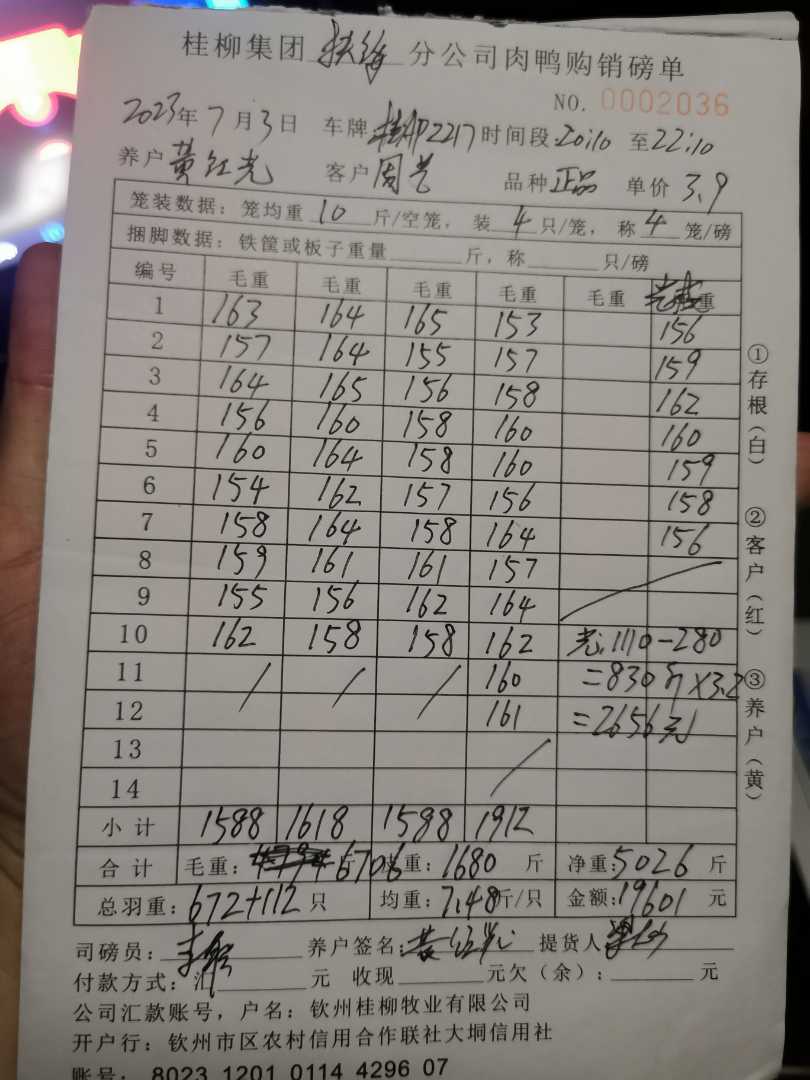 桂柳集团 扶绥 分公司肉鸭购销磅单
NO. 0002036
2023年 7月 3日 车牌 桂AP2217 时间段 20:10 至 22:10
养户 黄红光 客户 周艺 品种 正品 单价 3.9
笼装数据：笼均重 10 斤/空笼，装 4 只/笼，称 4 笼/磅
捆脚数据：铁筐或板子重量 斤，称 只/磅
编号 毛重 毛重 毛重 毛重 毛重 重
1 163 164 165 153 156
2 157 164 155 157 159
3 164 165 156 158 162
4 156 160 158 160 160
5 160 164 158 160 159
6 154 162 157 156 158
7 158 164 158 164 156
8 159 161 161 157
9 155 156 162 164
10 162 158 158 162 光:1110-280
11 160 =830斤×3.2
12 161 =2656元
13
14
小计 1588 1618 1588 1912
合计 毛重： 6706 重：1680 斤 净重：5026 斤
总羽重：672+112 只 均重：7.48 斤/只 金额：19601 元
司磅员： 养户签名： 提货人
付款方式：汇 元 收现 元欠（余）： 元
公司汇款账号，户名：钦州桂柳牧业有限公司
开户行：钦州市区农村信用合作联社大垌信用社
账号： 8023 1201 0114 4296 07
①存根（白） ②客户（红） ③养户（黄）